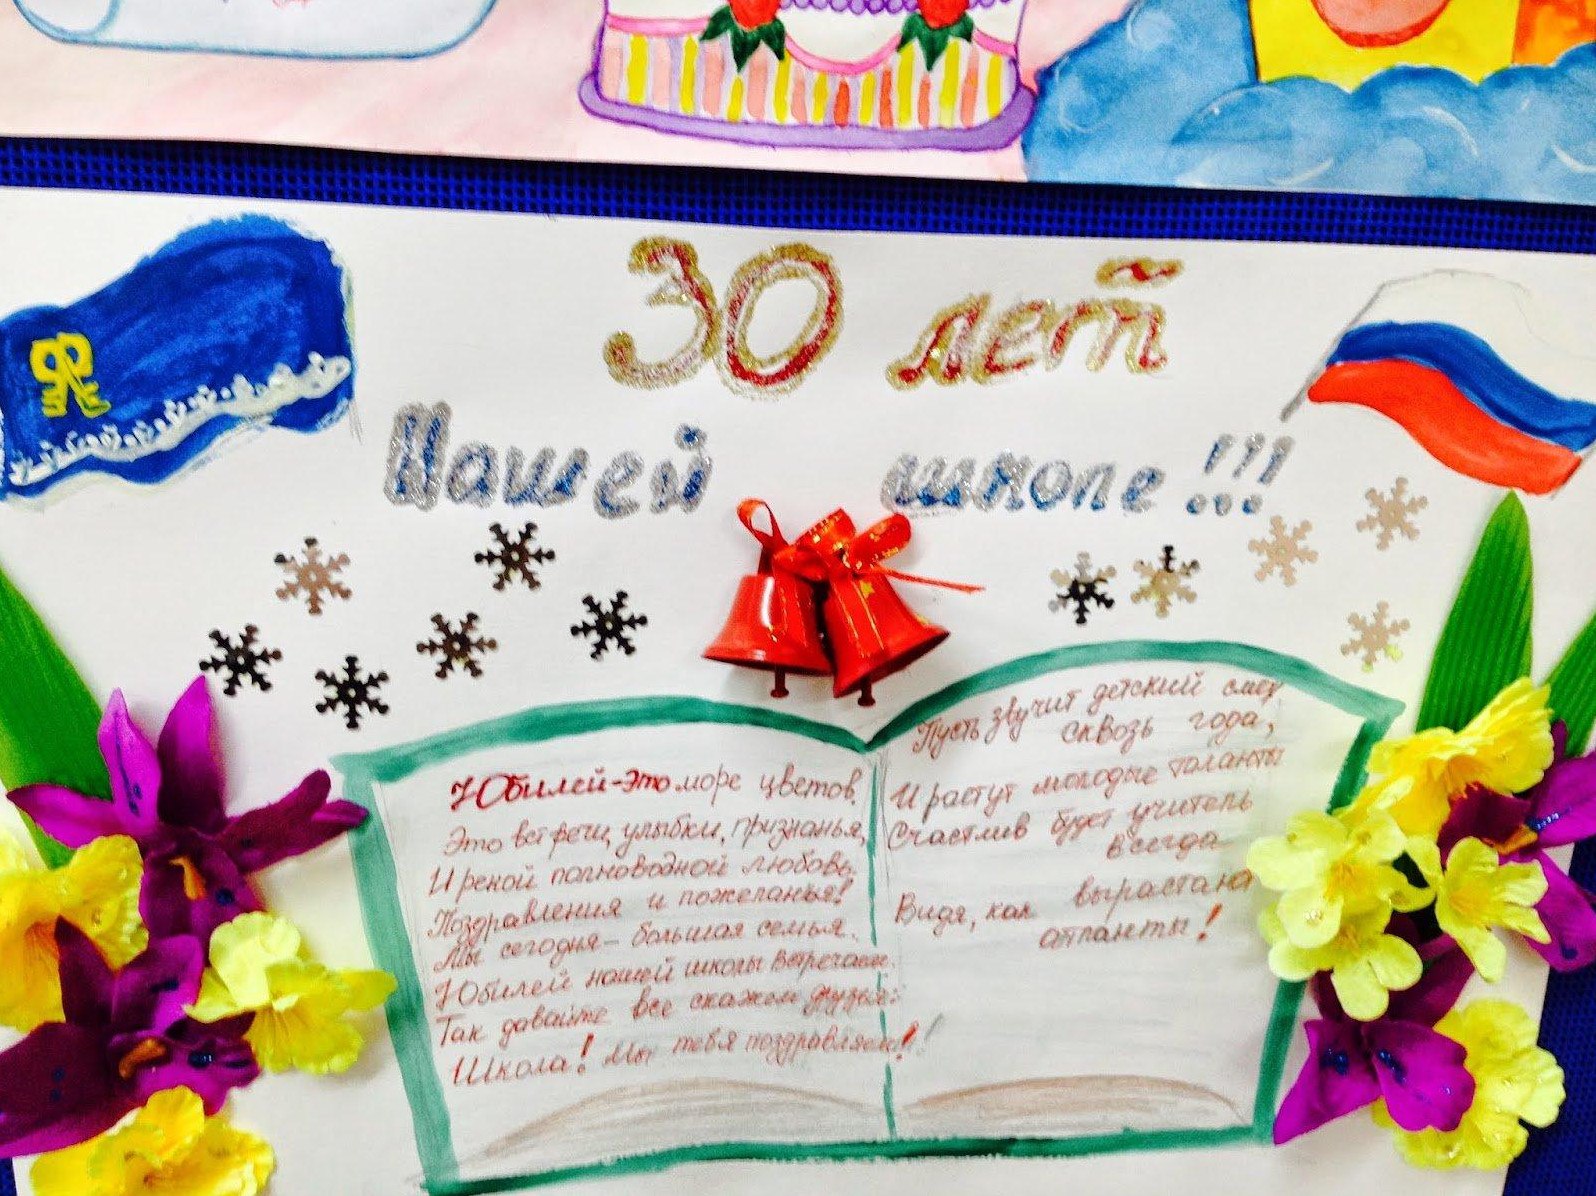 30 лет
Нашей школе!!!
Юбилей-это море цветов.
Это встречи, улыбки, признанья,
И рекой полноводной любовь.
Поздравления и пожеланья!
Мы сегодня - большая семья.
Юбилей нашей школы встречаем.
Так давайте все скажем друзья:
Школа! Мы тебя поздравляем!!
Пусть звучит детский смех
сквозь года,
И растут молодые таланты
Счастлив будет учитель
всегда
Видя, как вырастают
атланты!